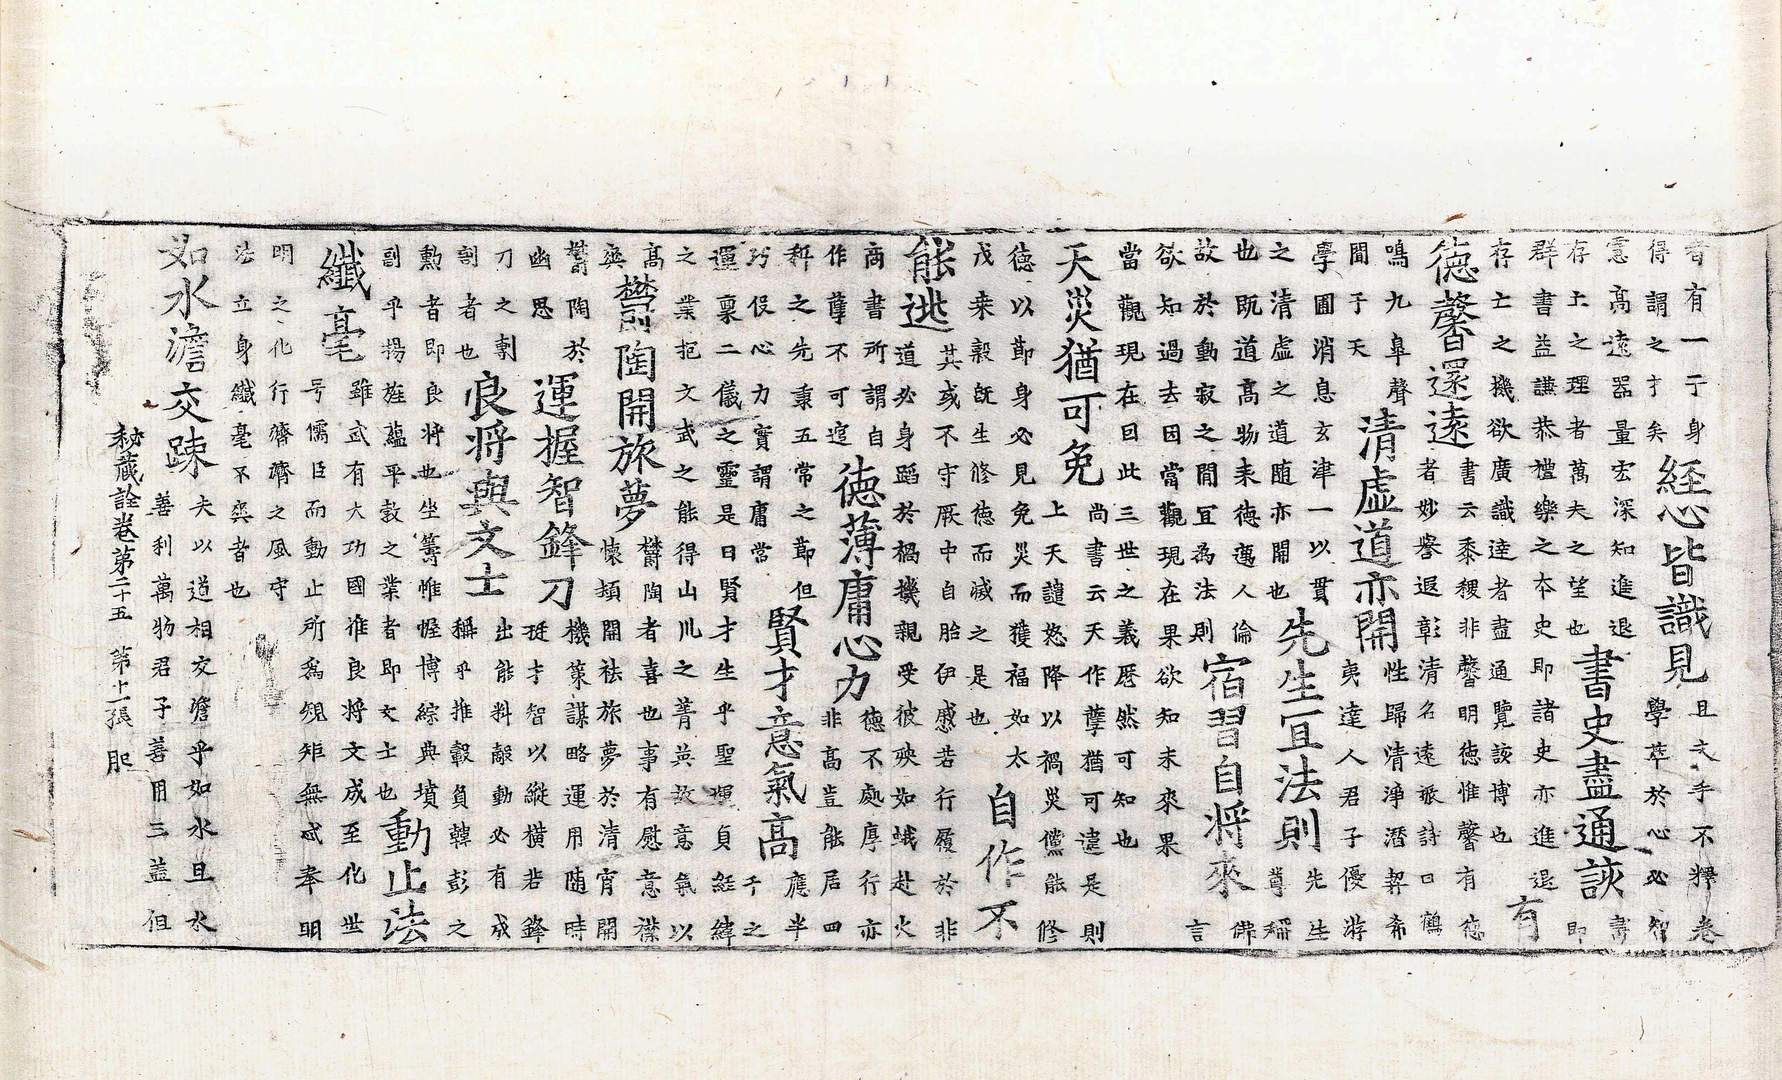 者有一于身
得謂之才矣
經心皆識見
且文手不釋卷
學萃於心必智
寬高遠器量宏深知進退
存亡之理者萬夫之望也
書史盡通該
書
即
群書益謙恭禮樂之本史即諸史亦進退
存亡之機欲廣識達者盡通覽該博也
有
德馨還遠
書云黍稷非馨明德惟馨有德
者妙譽遐彰清名遠振詩曰鶴
鳴九皐聲
聞于天
清虛道亦閑
性歸清淨潛契希
夷達人君子優游
學圃消息玄津一以貫
之清虛之道隨亦閑也
先生宜法則
先生
嘗稱
也既道高物表德邁人倫
故於動寂之間宜為法則
宿習自將來
佛
言
欲知過去因當觀現在果欲知未來果
當觀現在因此三世之義歷然可知也
天災猶可免
尚書云天作孽猶可違是則
上天譴怒降以禍災儻能修
德以節身必見免災而獲福如太
戊来穀既生修德而滅之是也
自作不
能逃
其或不守厥中自胎伊慼苦行履於非
道必身蹈於禍機親受彼殃如蛾赴火
商書所謂自
作孽不可逭
德薄庸心力
德不處厚行亦
非高豈能居四
科之先秉五常之節但
巧伎心力實謂庸常
賢才意氣高
應半
千之
運稟二儀之靈是曰賢才生乎聖運貞經緯
之業抱文武之能得山川之菁英故意氣以
高
爽
鬱陶開旅夢
鬱陶者喜也事有慰意襟
懷頻開祛旅夢於清宵開
鬱陶於
幽思
運握智鋒刀
機策謀略運用随時
挺才智以縱橫若鋒
刀之剸
割者也
良將與文士
出能料敵動必有成
稱乎推轂負韓彭之
勲者即良將也坐籌帷幄博綜典墳
副乎揚旌蘊平敎之業者即文士也
動止法
纖毫
雖武有大功國推良將文成至化世
号儒臣而動止所為規矩無忒奉明
明之化行濟濟之風守
法立身纖毫不爽者也
如水澹交踈
夫以道相交澹乎如水且水
善利萬物君子善用三益但
秘藏詮卷第二十五 第十一張 肥